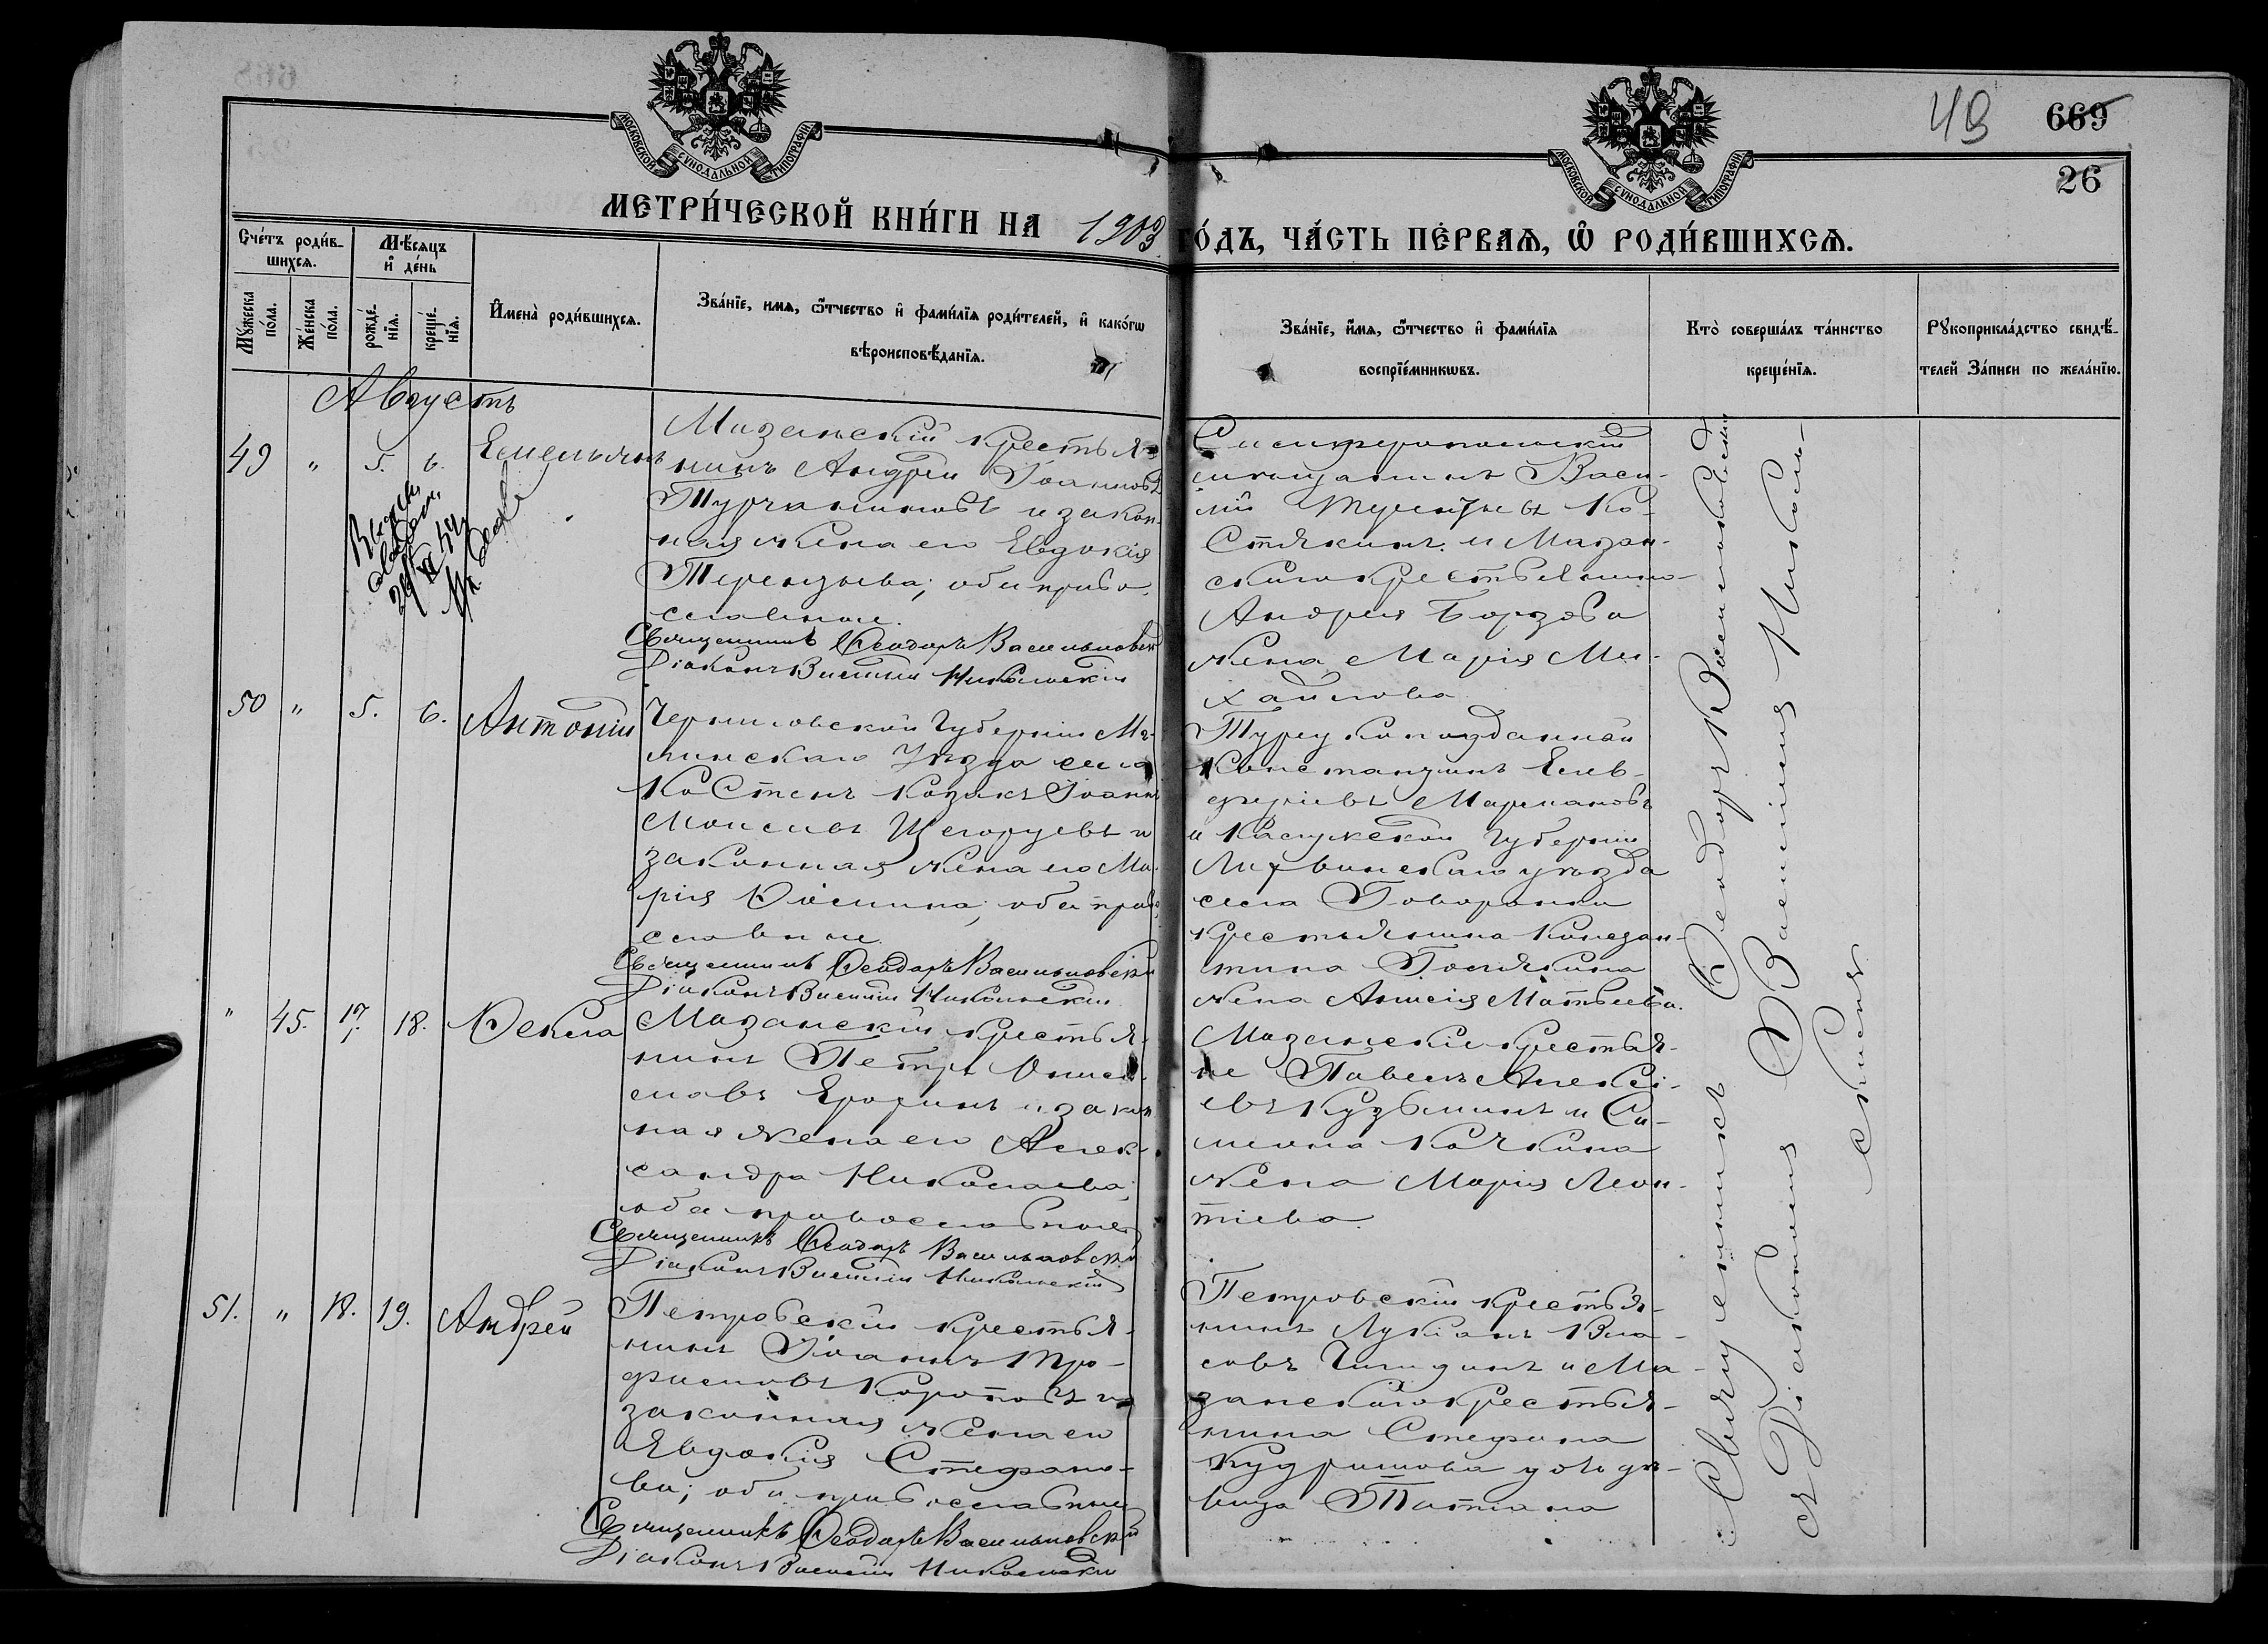 669
49
26
МОСКОВСКОЙ СѴНОДАЛЬНОЙ ТИПОГРАФІИ
МОСКОВСКОЙ СѴНОДАЛЬНОЙ ТИПОГРАФІИ
МЕТРИ́ЧЕСКОЙ КНИ́ГИ НА 1903 ГО́ДЪ, ЧА́СТЬ ПЕ́РВАѦ, Ѿ РОДИ́ВШИХСѦ.
Сче́тъ роди́в-
шихсѧ.
Мѣ́сѧцъ
и҆ де́нь
Мꙋ́жеска
по́ла.
Же́нска
по́ла.
рожде́-
нїѧ.
креще́-
нїѧ.
И҆мена̀ роди́вшихсѧ.
Зва́нїе, имѧ, ѻ҆́тчество и҆ фами́лїѧ роди́телей, и҆ како́гѡ
вѣроисповѣ́данїѧ.
Зва́нїе, и҆́мѧ, ѻ҆́тчество и҆ фами́лїѧ
воспрїе́мникѡвъ.
Кто̀ соверша́лъ та́инство
креще́нїѧ.
Рꙋкоприкла́дство свидѣ́-
телей За́писи по жела́нїю.
Августъ
49 " 5. 6. Емельянъ
Мазанскій крестья-
нинъ Андрей Іоанновъ
Турчаниновъ и закон-
ная жена его Евдокія
Терентьева; оба право-
славные.
Священникъ Ѳеодоръ Васильковскій
Діаконъ Василій Никольскій
Симферопольскій
мѣщанинъ Васи-
лій Терентьевъ Ко-
стякинъ и Мазан-
скаго крестьянина
Андрея Борзова
жена Марія Ми-
хайлова
50 " 5. 6. Антоній
Черниговской Губерніи Мг-
линскаго Уѣзда села
Костенъ Козакъ Іоаннъ
Моисеевъ Щегорцевъ и
законная жена его Ма-
рія Ѳомина; оба право-
славные.
Священникъ Ѳеодоръ Васильковскій
Діаконъ Василій Никольскій
Турецкоподданный
Константинъ Елев-
феріевъ Мармановъ
и Калужской губерніи
Лихвинскаго уѣзда
села Говоронки
крестьянина Констан-
тина Голякина
жена Анисія Матвеева.
" 45. 17. 18. Ѳекла
Мазанскій крестья-
нинъ Петръ Аниси-
мовъ Ерохинъ и закон-
ная жена его Алек-
сандра Николаева;
оба православные
Священникъ Ѳеодоръ Васильковскій
Діаконъ Василій Никольскій
Мазанскіе крестья-
не Павелъ Алексѣ-
евъ Кузьминъ и Си-
меона Качкина
жена Марія Леон-
тіева.
51. " 18. 19. Андрей
Петровскій крестья-
нинъ Іоаннъ Про-
фимовъ Коротовъ и
законная жена его
Евдокія Стефано-
ва; оба православные
Священникъ Ѳеодоръ Васильковскій
Діаконъ Василій Никольскій
Петровскій крестья-
нинъ Лукіанъ Вла-
совъ Чигидинъ и Ма-
занскаго крестья-
нина Стефана
Кудряшова дочь дѣ-
вица Татіана
Священникъ Ѳеодоръ Васильковскій
съ Діакономъ Василіемъ Николь-
скимъ